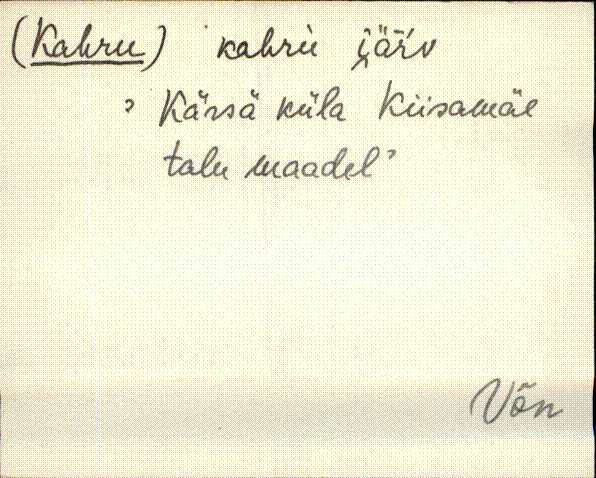 (Kahru) kahru järv
, Kärsä küla Kiisamäe
talu maadel’
Võn